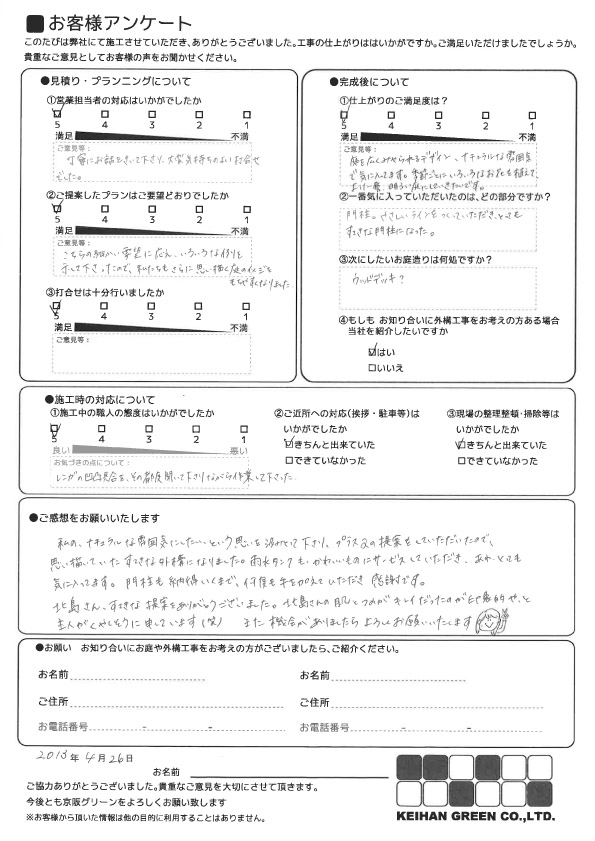 お客様アンケート
このたびは弊社にて施工させていただき、ありがとうございました。工事の仕上がりははいかがですか。ご満足いただけましたでしょうか。
貴重なご意見としてお客様の声をお聞かせください。
●見積り・プランニングについて
①営業担当者の対応はいかがでしたか
5 4 3 2 1
満足 不満
ご意見等：
丁寧にお話をきいて下さり、大変気持ちのよい打合せ
でした。
②ご提案したプランはご要望どおりでしたか
5 4 3 2 1
満足 不満
ご意見等：
こちらの細かい要望に応え、いろいろな例りを
示して下さったので、私たちもさらに思い描く庭のイメージを
もちやすくなりました
③打合せは十分行いましたか
5 4 3 2 1
満足 不満
ご意見等：
●完成後について
①仕上がりのご満足度は？
5 4 3 2 1
満足 不満
ご意見等：
庭を広くみせられるデザイン、ナチュラルな雰囲気
で気に入ってます。季節ごとにいろいろなお花を植えて
明るい庭にしていきたいです。
②一番気に入っていただいたのは、どの部分ですか？
門柱。やさしいラインをつくっていただき、とても
すてきな門柱になった。
③次にしたいお庭造りは何処ですか？
ウッドデッキ？
④もしも お知り合いに外構工事をお考えの方ある場合
当社を紹介したいですか
はい
いいえ
●施工時の対応について
①施工中の職人の態度はいかがでしたか
5 4 3 2 1
良い 悪い
お気づきの点について：
レンガの凹凸具合を、その都度聞いて下さりながら作業して下さった
②ご近所への対応(挨拶・駐車等)は
いかがでしたか
きちんと出来ていた
できていなかった
③現場の整理整頓・掃除等は
いかがでしたか
きちんと出来ていた
できていなかった
●ご感想をお願いいたします
私の、ナチュラルな雰囲気にしたいという思いを汲みとって下さり、プラスαの提案をしていただいたので、
思い描いていたすてきな外構になりました。雨水タンクもかわいいものにサービスしていただき、とても
気に入ってます。門柱も納得いくまで、何度も手を加えていただき 感謝です。
北島さん、すてきな提案をありがとうございました。北島さんの肌とつめがキレイだったのが印象的や、と
主人がくやしそうに申しています(笑) また機会がありましたらよろしくお願いいたします
●お願い お知り合いにお庭や外構工事をお考えの方がございましたら、ご紹介ください。
お名前 お名前
ご住所 ご住所
お電話番号 - - お電話番号 - -
2013 年 4 月 26 日
お名前
ご協力ありがとうございました。貴重なご意見を大切にさせて頂きます。
今後とも京阪グリーンをよろしくお願い致します
※お客様から頂いた情報は他の目的に利用することはありません。
KEIHAN GREEN CO.,LTD.